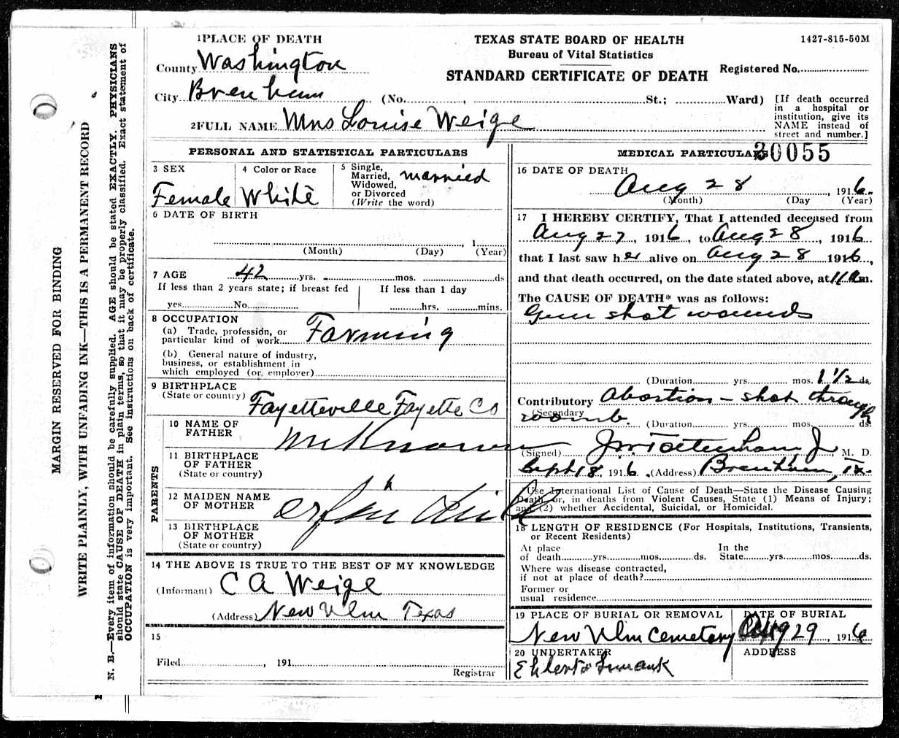 1 PLACE OF DEATH
County Washington
City Brenham (No. , St.; Ward)
2 FULL NAME Mrs Louise Weige
TEXAS STATE BOARD OF HEALTH
Bureau of Vital Statistics
STANDARD CERTIFICATE OF DEATH
1427-815-50M
Registered No.
[If death occurred
in a hospital or
institution, give its
NAME instead of
street and number.]
30055
PERSONAL AND STATISTICAL PARTICULARS
3 SEX
Female
4 Color or Race
White
5 Single,
Married,
Widowed,
or Divorced
(Write the word)
married
6 DATE OF BIRTH
, 1
(Month) (Day) (Year)
7 AGE 42 yrs. mos. ds
If less than 2 years state; if breast fed
yes No.
If less than 1 day
hrs. mins.
8 OCCUPATION
(a) Trade, profession, or
particular kind of work Farming
(b) General nature of industry,
business, or establishment in
which employed (or employer)
9 BIRTHPLACE
(State or country) Fayetteville Fayette Co
PARENTS
10 NAME OF
FATHER unknown
11 BIRTHPLACE
OF FATHER
(State or country)
12 MAIDEN NAME
OF MOTHER
13 BIRTHPLACE
OF MOTHER
(State or country)
14 THE ABOVE IS TRUE TO THE BEST OF MY KNOWLEDGE
(Informant) C A Weige
(Address) New Ulm Texas
15
Filed , 191
Registrar
MEDICAL PARTICULARS
16 DATE OF DEATH
Aug 28 , 1916.
(Month) (Day (Year)
17 I HEREBY CERTIFY, That I attended deceased from
Aug 27, 1916, to Aug 28, 1916
that I last saw her alive on Aug 28 1916,
and that death occurred, on the date stated above, at m.
The CAUSE OF DEATH* was as follows:
Gun shot wounds
(Duration yrs. mos. 1 1/2 ds.
Contributory Abortion - shot through
(Secondary womb.
(Duration yrs. mos. ds.
(Signed) M. D.
Sept 18 1916 (Address) Brenham, Tx.
*Use International List of Cause of Death—State the Disease Causing
Death, or, in deaths from Violent Causes, State (1) Means of Injury;
and (2) whether Accidental, Suicidal, or Homicidal.
18 LENGTH OF RESIDENCE (For Hospitals, Institutions, Transients,
or Recent Residents)
At place
of death yrs. mos. ds.
In the
State yrs. mos. ds.
Where was disease contracted,
if not at place of death?
Former or
usual residence
19 PLACE OF BURIAL OR REMOVAL
New Ulm Cemetery
DATE OF BURIAL
29 , 1916
20 UNDERTAKER
ADDRESS
MARGIN RESERVED FOR BINDING
WRITE PLAINLY, WITH UNFADING INK—THIS IS A PERMANENT RECORD
N. B.—Every item of information should be carefully supplied. AGE should be stated EXACTLY. PHYSICIANS
should state CAUSE OF DEATH in plain terms, so that it may be properly classified. Exact statement of
OCCUPATION is very important. See instructions on back of certificate.